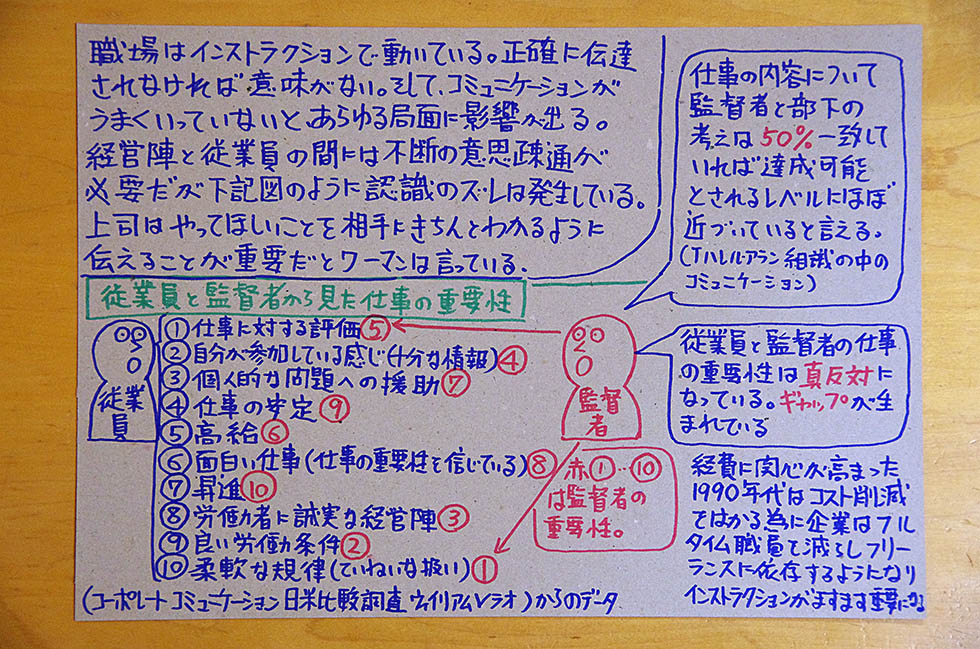 職場はインストラクションで動いている。正確に伝達
されなければ意味がない。そして、コミュニケーションが
うまくいっていないと、あらゆる局面に影響が出る。
経営陣と従業員の間には不断の意思疎通が
必要だが下記図のように認識のズレは発生している。
上司はやってほしいことを相手にきちんとわかるように
伝えることが重要だとワーマンは言っている。
仕事の内容について
監督者と部下の
考えは50%一致して
いれば達成可能
とされるレベルにほぼ
近づいていると言える。
(Tハレル・アラン 組識の中の
コミュニケーション)
従業員と監督者から見た仕事の重要性
従業員
①仕事に対する評価⑤
②自分が参加している感じ(十分な情報)④
③個人的な問題への援助⑦
④仕事の安定⑨
⑤高給⑥
⑥面白い仕事(仕事の重要性を信じている)⑧
⑦昇進⑩
⑧労働者に誠実な経営陣③
⑨良い労働条件②
⑩柔軟な規律(ていねいな扱い)①
(コーポレートコミューケーション日米比較調査 ウィリアムVラオ)からのデータ
監督者
赤①‥⑩
は監督者の
重要性。
従業員と監督者の仕事
の重要性は真反対に
なっている。ギャップが生
まれている
経費に関心が高まった
1990年代はコスト削減
ではかる為に企業はフル
タイム職員を減らしフリー
ランスに依存するようになり
インストラクションがますます重要になる